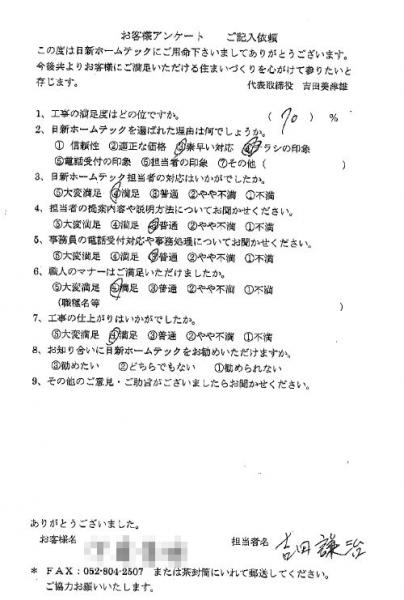 お客様アンケート　ご記入依頼
この度は日新ホームテックにご用命下さいましてありがとうございます。
今後共よりお客様にご満足いただける住まいづくりを心がけて参りたいと
存じます。　代表取締役　吉田美津雄
1、工事の満足度はどの位ですか。　（　70　）％
2、日新ホームテックを選ばれた理由は何でしょうか。
① 信頼性　②適正な価格　③素早い対応　④チラシの印象
⑤電話受付の印象　⑥担当者の印象　⑦その他（　）
3、日新ホームテック担当者の対応はいかがでしたか。
⑤大変満足　④満足　③普通　②やや不満　①不満
4、担当者の提案内容や説明方法についてお聞かせください。
⑤大変満足　④満足　③普通　②やや不満　①不満
5、事務員の電話受付対応や事務処理についてお聞かせください。
⑤大変満足　④満足　③普通　②やや不満　①不満
6、職人のマナーはご満足いただけましたか。
⑤大変満足　④満足　③普通　②やや不満　①不満
(職種名等　)
7、工事の仕上がりはいかがでしたか。
⑤大変満足　④満足　③普通　②やや不満　①不満
8、お知り合いに日新ホームテックをお勧めいただけますか。
③勧めたい　②どちらでもない　①勧められない
9、その他のご意見・ご助言がございましたらお聞かせください。
ありがとうございました。
お客様名　担当者名　吉田謙治
* FAX：052-804-2507　または茶封筒にいれて郵送してください。
ご協力お願いいたします。